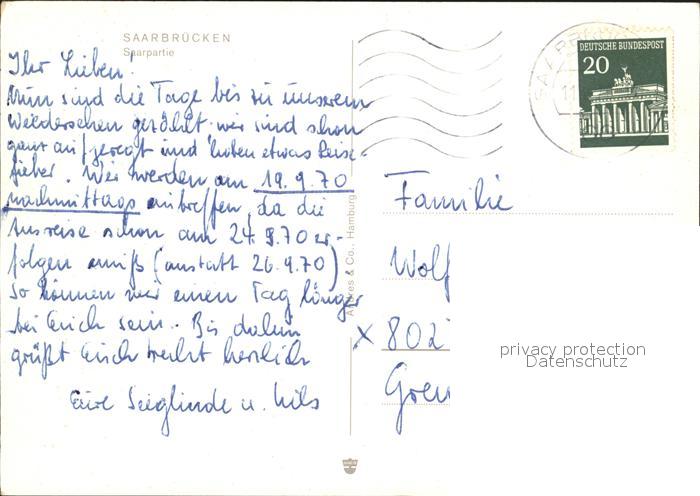 SAARBRÜCKEN
Saarpartie
Ihr Lieben!
Nun sind die Tage bis zu unserem
Wiedersehen gezählt. wir sind schon
ganz aufgeregt und haben etwas Reise-
fieber. Wir werden am 19.9.70
nachmittags eintreffen, da die
Ausreise schon am 24.9.70 er-
folgen muß (anstatt 26.9.70)
So können wir einen Tag länger
bei Euch sein. Bis dahin
grüßt Euch recht herzlich
Eure Sieglinde u. Nils
Andres & Co., Hamburg
DEUTSCHE BUNDESPOST
20
SAARBRÜ
11
Familie
Wolf
x 802
Gren
privacy protection
Datenschutz